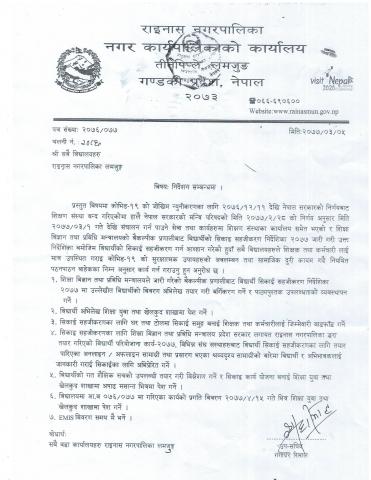 राइनास नगरपालिका
नगर कार्यपालिकाको कार्यालय
तीनपिप्ले, लमजुङ
गण्डकी प्रदेश, नेपाल
२०७३
visit Nepal
2020
☎०६६-६९०६००
Website:www.rainasmun.gov.np
पत्र संख्याः २०७६/०७७
मितिः२०७७/०३/०५
चलानी नं.
श्री सबै विद्यालयहरु
राइनास नगरपालिका लमजुङ
विषयः निर्देशन सम्बन्धमा ।
प्रस्तुत विषयमा कोभिड-१९ को जोखिम न्यूनीकरणका लागि २०७६/१२/११ देखि नेपाल सरकारको निर्णयबाट
शिक्षण संस्था बन्द गरिएकोमा हालै नेपाल सरकारको मन्त्रि परिषदको मिति २०७७/२/२८ को निर्णय अनुसार मिति
२०७७/०३/०१ गते देखि संचालन गर्न पाउने सेवा तथा कार्यहरुमा शिक्षण संस्थाका कार्यालय समेत भएको र शिक्षा
विज्ञान तथा प्रविधि मन्त्रालयको वैकल्पीक प्रणालीबाट विद्यार्थीको सिकाइ सहजीकरण निर्देशिका २०७७ जारी गरी उक्त
निर्देशिका बमोजिम विद्यार्थीको सिकाइ सहजीकरण गर्न आवहान गरेको हुदाँ सबै विद्यालयहरुले शिक्षक तथा कर्मचारी लाई
मात्र उपस्थित गराइ कोभिड-१९ को सुरक्षात्मक उपायहरुको अवलम्बन तथा सामाजिक दुरी कायम गर्दै नियमित
पठनपाठन बाहेकका निम्न अनुसार कार्य गर्न गराउनु हुन अनुरोध छ ।
१. शिक्षा विज्ञान तथा प्रविधि मन्त्रालयले जारी गरेको वैकल्पीक प्रणालीबाट विद्यार्थी सिकाइ सहजीकरण निर्देशिका
२०७७ मा उल्लेखीत विद्यार्थीको विवरण अभिलेख तयार गरी बर्गिकरण गर्ने र पाठ्यपुस्तक उपलब्धताको व्यवस्थापन
गर्ने ।
२. विद्यार्थी अभिलेख शिक्षा युवा तथा खेलकुद शाखामा पेश गर्ने ।
३. सिकाई सहजीकरणका लागि घर तथा टोलमा सिकाई समुह बनाई शिक्षक तथा कर्मचारीलाई जिम्मेवारी बाडफाँड गर्ने
४. सिकाई सहजीकरणका लागि शिक्षा विज्ञान तथा प्रविधि मन्त्रालय प्रदेश सरकार लगायत राइनास नगरपालिका द्वारा
तयार गरिएको विद्यार्थी परियोजना कार्य-२०७७, विभिन्न संघ संस्थाहरुबाट विद्यार्थी सिकाई सहजीकरणका लागि तयार
पारिएका अनलाइन / अफलाइन सामाग्री तथा प्रसारण भएका श्रव्यदृश्य सामाग्रीको बारेमा विद्यार्थी र अभिभावकलाई
जानकारी गराई सिकाईका लागि अभिप्रेरित गर्ने ।
५. विद्यार्थीको गत शैक्षिक सत्रको उपलब्धी तयार गरी विश्लेषण गर्ने र सिकाइ कार्य योजना बनाई शिक्षा युवा तथा
खेलकुद शाखामा
६. विद्यालयमा आ.ब २०७६/०७७ मा गरिएका कार्यको प्रगति विवरण २०७७/४/१५ गते भित्र शिक्षा युवा तथा
खेलकुद शाखामा पेश गर्ने ।
७. EMIS विवरण समयमै भर्ने ।
बोधार्थः
सबै वडा कार्यालयहरु राइनास नगरपालिका लमजुङ